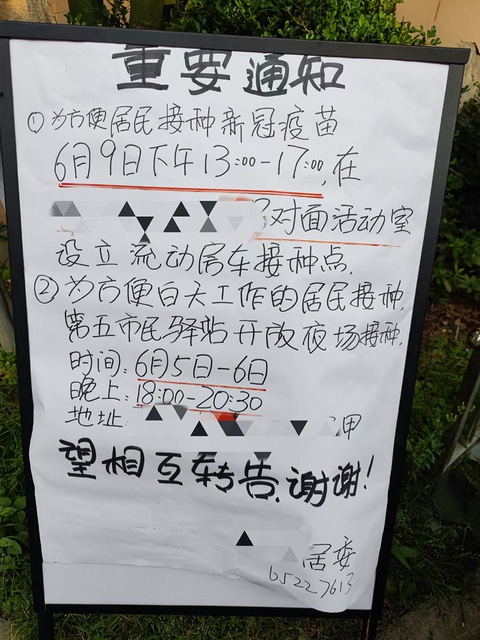 重要通知
①为方便居民接种新冠疫苗
6月9日下午13:00-17:00,在
对面活动室
设立流动房车接种点.
②为方便白天工作的居民接种,
第五市民驿站开放夜场接种,
时间:6月5日-6日
晚上:18:00-20:30
地址:
甲
望相互转告,谢谢!
居委
65227613